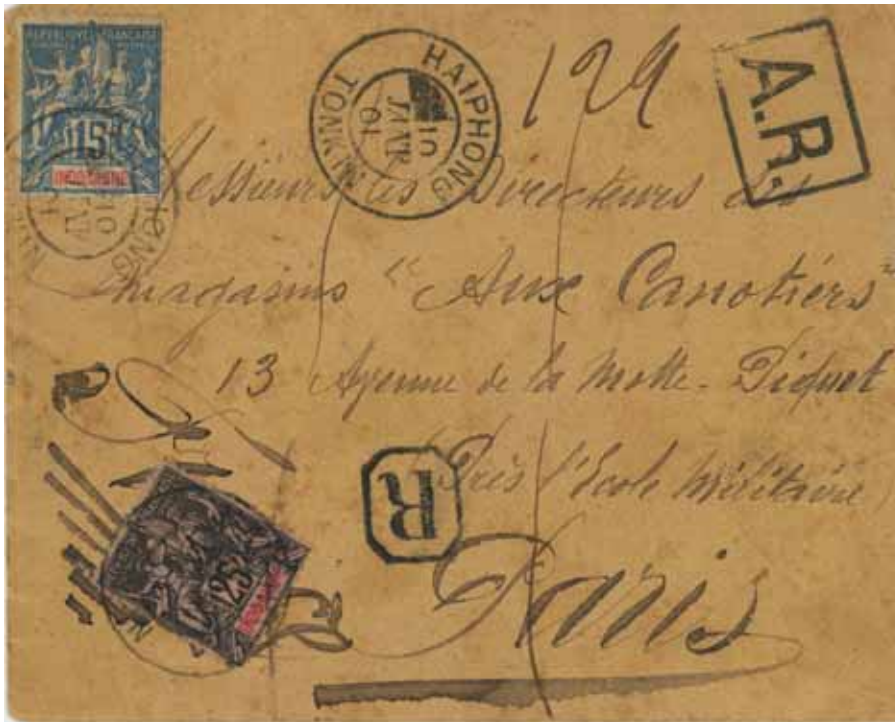 REPUBLIQUE FRANÇAISE
15
INDO-CHINE
HAIPHONG
10
JANV
01
TONKIN
129
A.R.
HONG
10
Messieurs les Directeurs des
magasins "Aux Canotiers"
13 Avenue de la Motte-Piquet
Près l'Ecole Militaire
R
25
INDO-CHINE
Paris